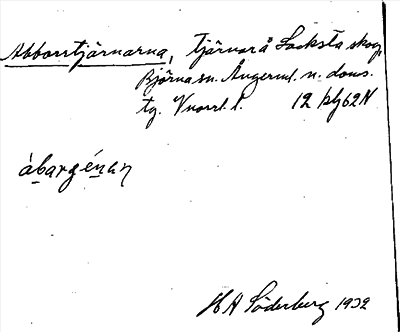 Abborrtjärnarna, tjärnar å Locksta skog,
Björna sn. Ångerml. n. doms.
tg. Vnorrl. l. 12 hg 62 N
àbargę́nan
HA Söderberg 1932